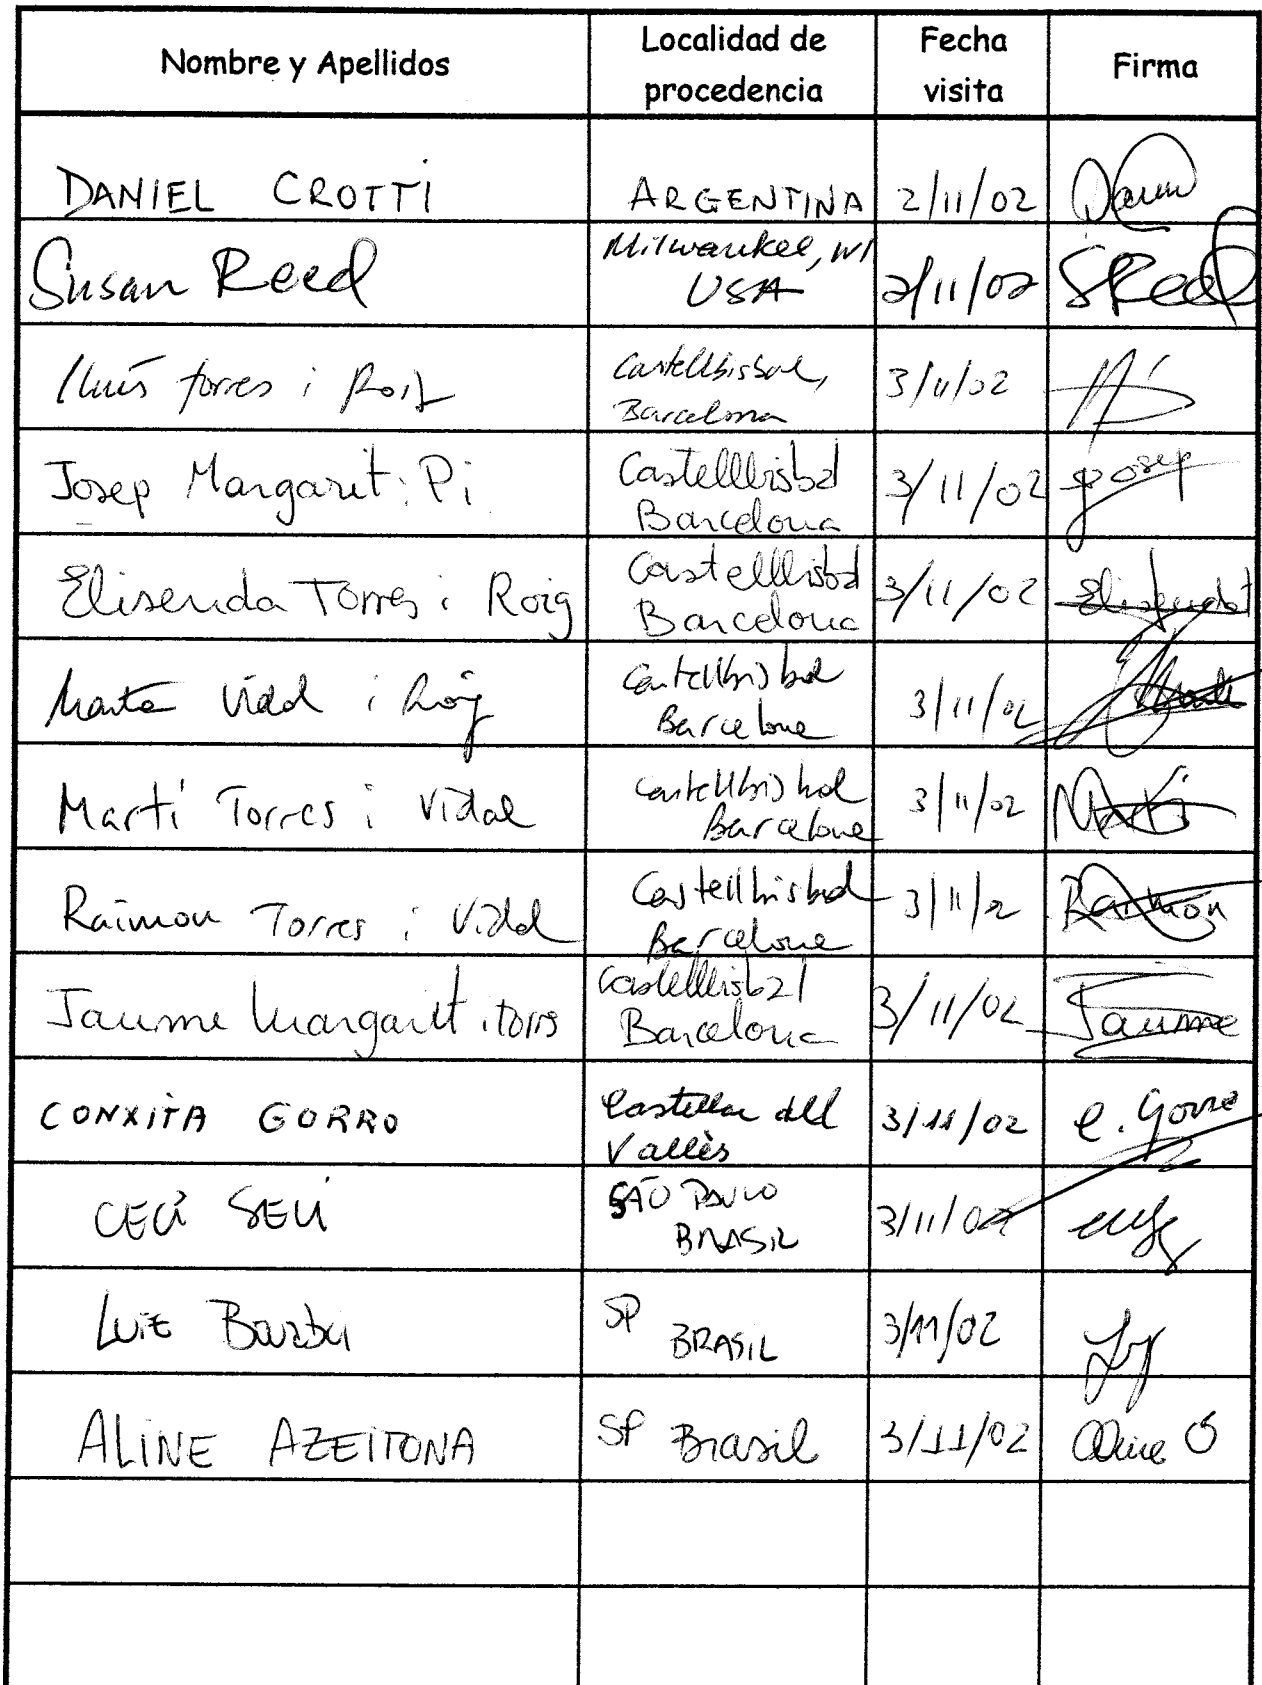 Nombre y Apellidos
Localidad de
procedencia
Fecha
visita
Firma
DANIEL CROTTI
ARGENTINA
2/11/02
Susan Reed
Milwaukee, WI
USA
2/11/02
SReed
Lluís Torres i Roig
Castellbisbal,
Barcelona
3/11/02
Josep Margarit i Pi
Castellbisbal
Barcelona
3/11/02
Josep
Elisenda Torres i Roig
Castellbisbal
Barcelona
3/11/02
Marta Vidal i Roig
Castellbisbal
Barcelona
3/11/02
Martí Torres i Vidal
Castellbisbal
Barcelona
3/11/02
Martí
Raimon Torres i Vidal
Castellbisbal
Barcelona
3/11/02
Raimon
Jaume Margarit i Torres
Castellbisbal
Barcelona
3/11/02
Jaume
CONXITA GORRO
Castellar del
Vallès
3/11/02
C. Gorro
SÃO PAULO
BRASIL
3/11/02
Luiz
SP
BRASIL
3/11/02
ALINE AZEITONA
SP Brasil
3/11/02
Aline